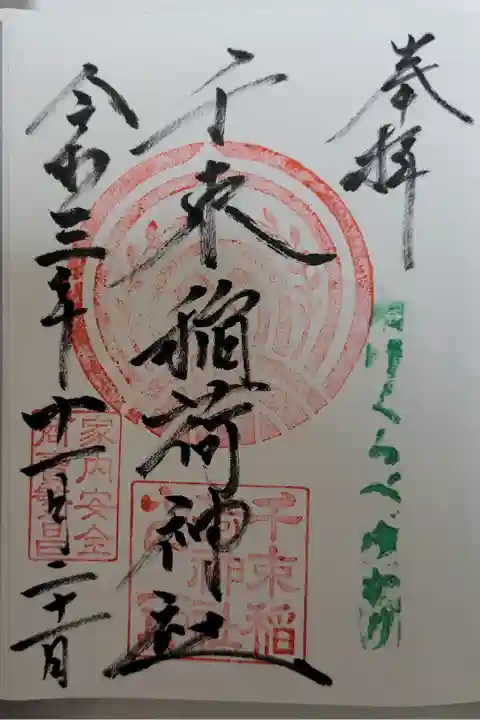 奉拝
たけくらべゆかり
千束稲荷神社
千束稲
荷神社
令和三年十一月二十一日
家内安全
商売繁昌